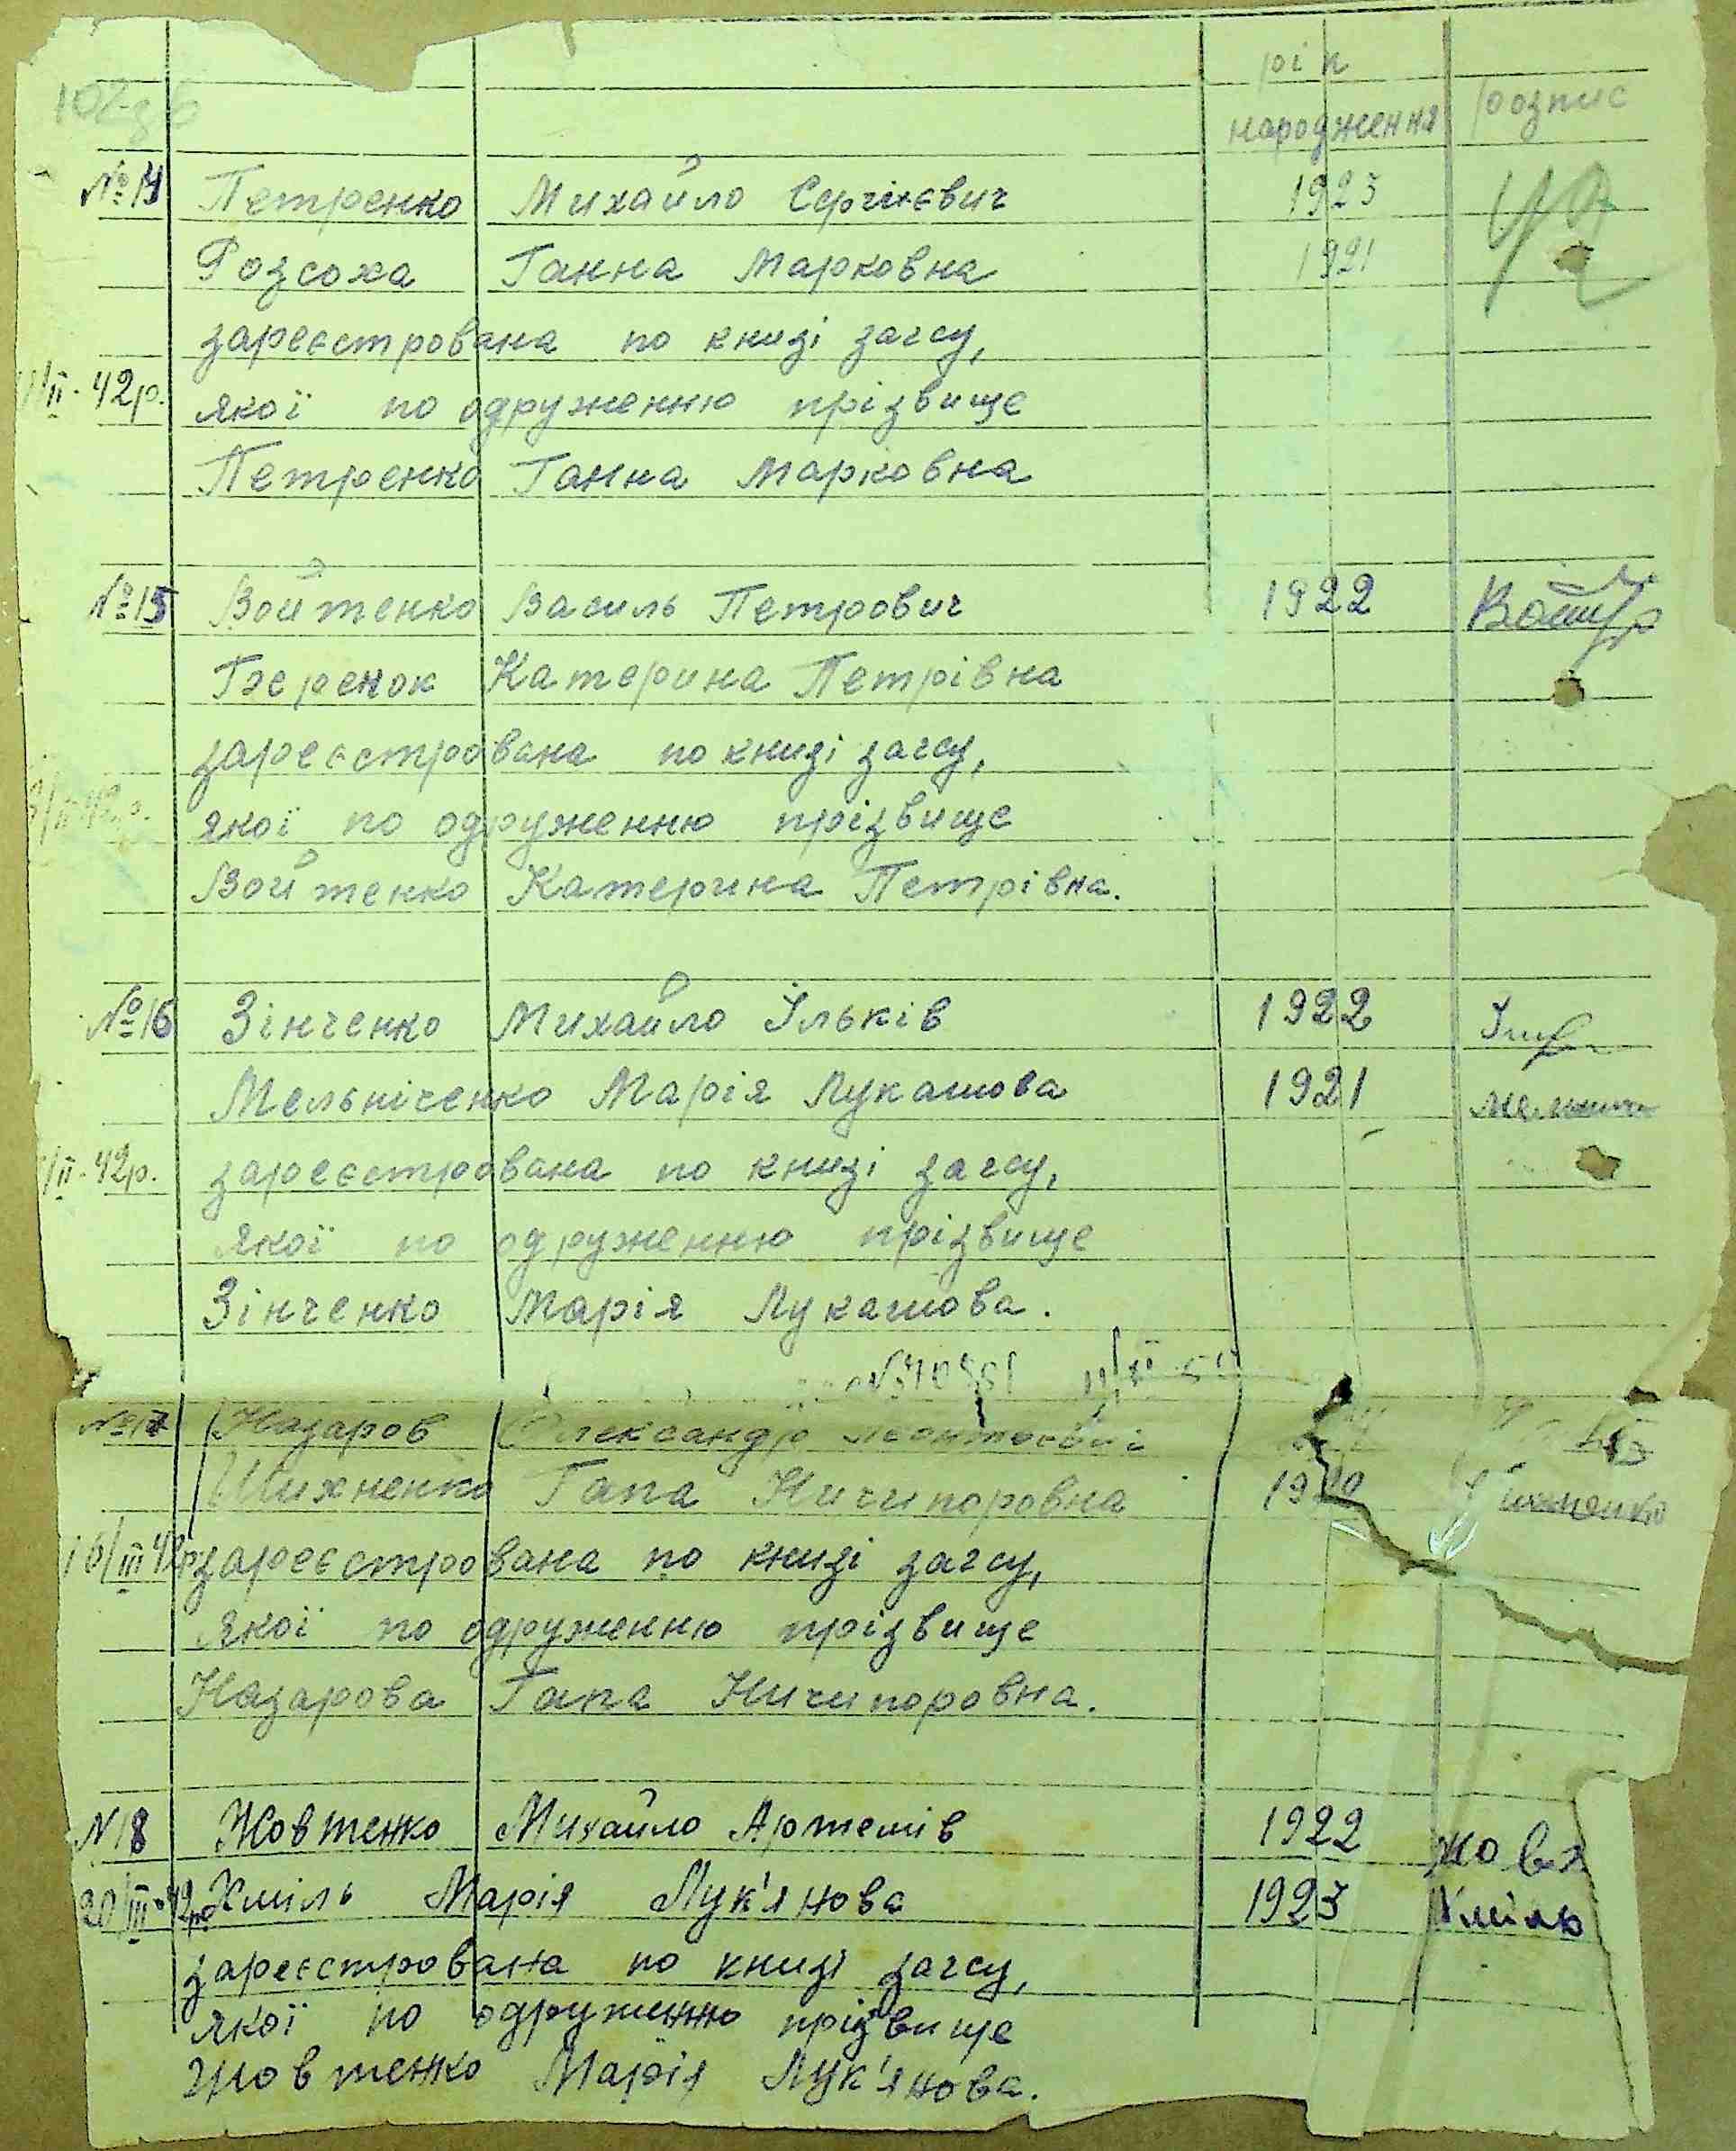 рік
народження розпис
№ 14 Петренко Михайло Сергієвич 1923
Розсоха Ганна Марковна 1921
зареєстрована по книзі загсу,
II - 42р. якої по одруженню прізвище
Петренко Ганна Марковна
№ 15 Войтенко Василь Петрович 1922
Катерина Петрівна
зареєстрована по книзі загсу,
якої по одруженню прізвище
Войтенко Катерина Петрівна.
№ 16 Зінченко Михайло Ільків 1922
Мельніченко Марія Лукашова 1921
/II - 42р. зареєстрована по книзі загсу,
якої по одруженню прізвище
Зінченко Марія Лукашова.
№ 17 Назаров Олександр
Гапа Ничипоровна
16/III 42р зареєстрована по книзі загсу,
якої по одруженню прізвище
Назарова Гапа Ничипоровна.
N 18 Жовтенко Михайло Артемів 1922
20/III - 42р Хміль Марія Лук'янова 1923 Хміль
зареєстрована по книзі загсу,
якої по одруженню прізвище
Жовтенко Марія Лук'янова.